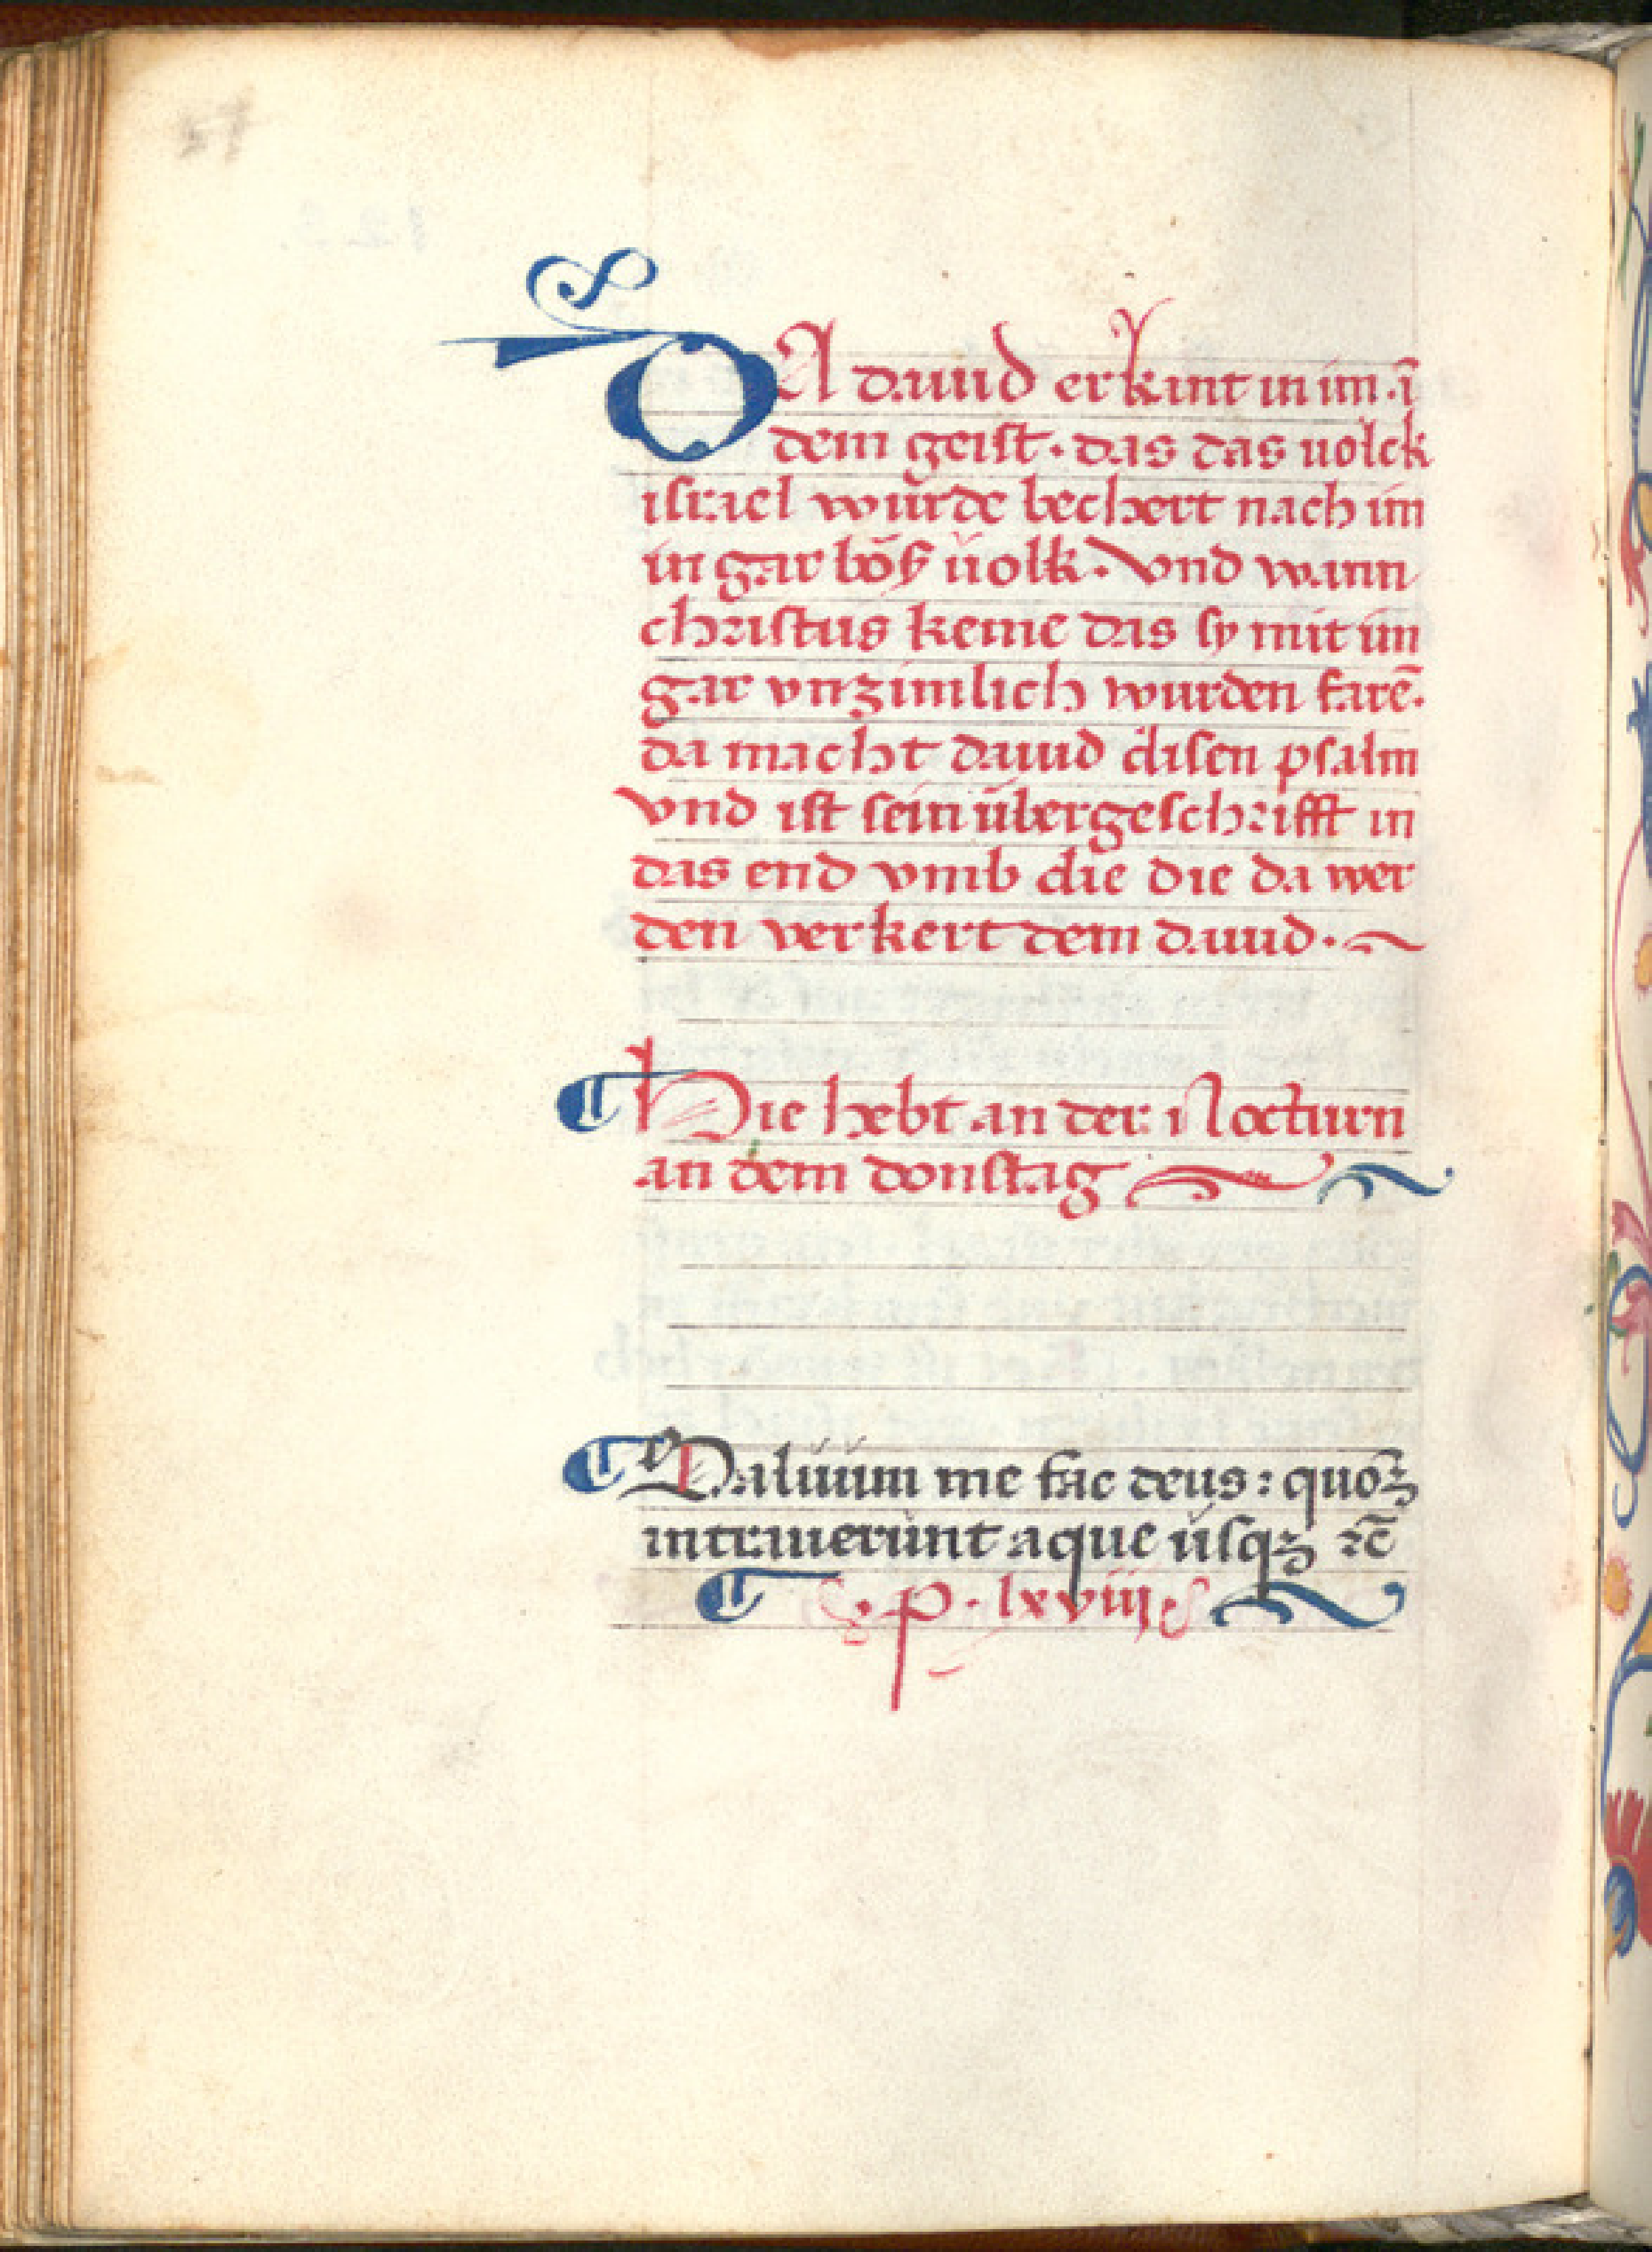 DA dauid erkant in im · ī
dem geist · das das uolck
israel wúrde bechert nach im
in gar bös uolk · vnd wann
christus keme das sy mit im
gar vnzimlich wurden farē·
da macht dauid disen psalm
vnd ist sein übergeschrifft in
das end vmb die die da wer
den verkert dem dauid ·
Hie hebt an der Nocturn
an dem donstag
Saluum me fac deus : quoꝫ
intrauerunt aque usqꝫ ⁊c̄
p · lxviij